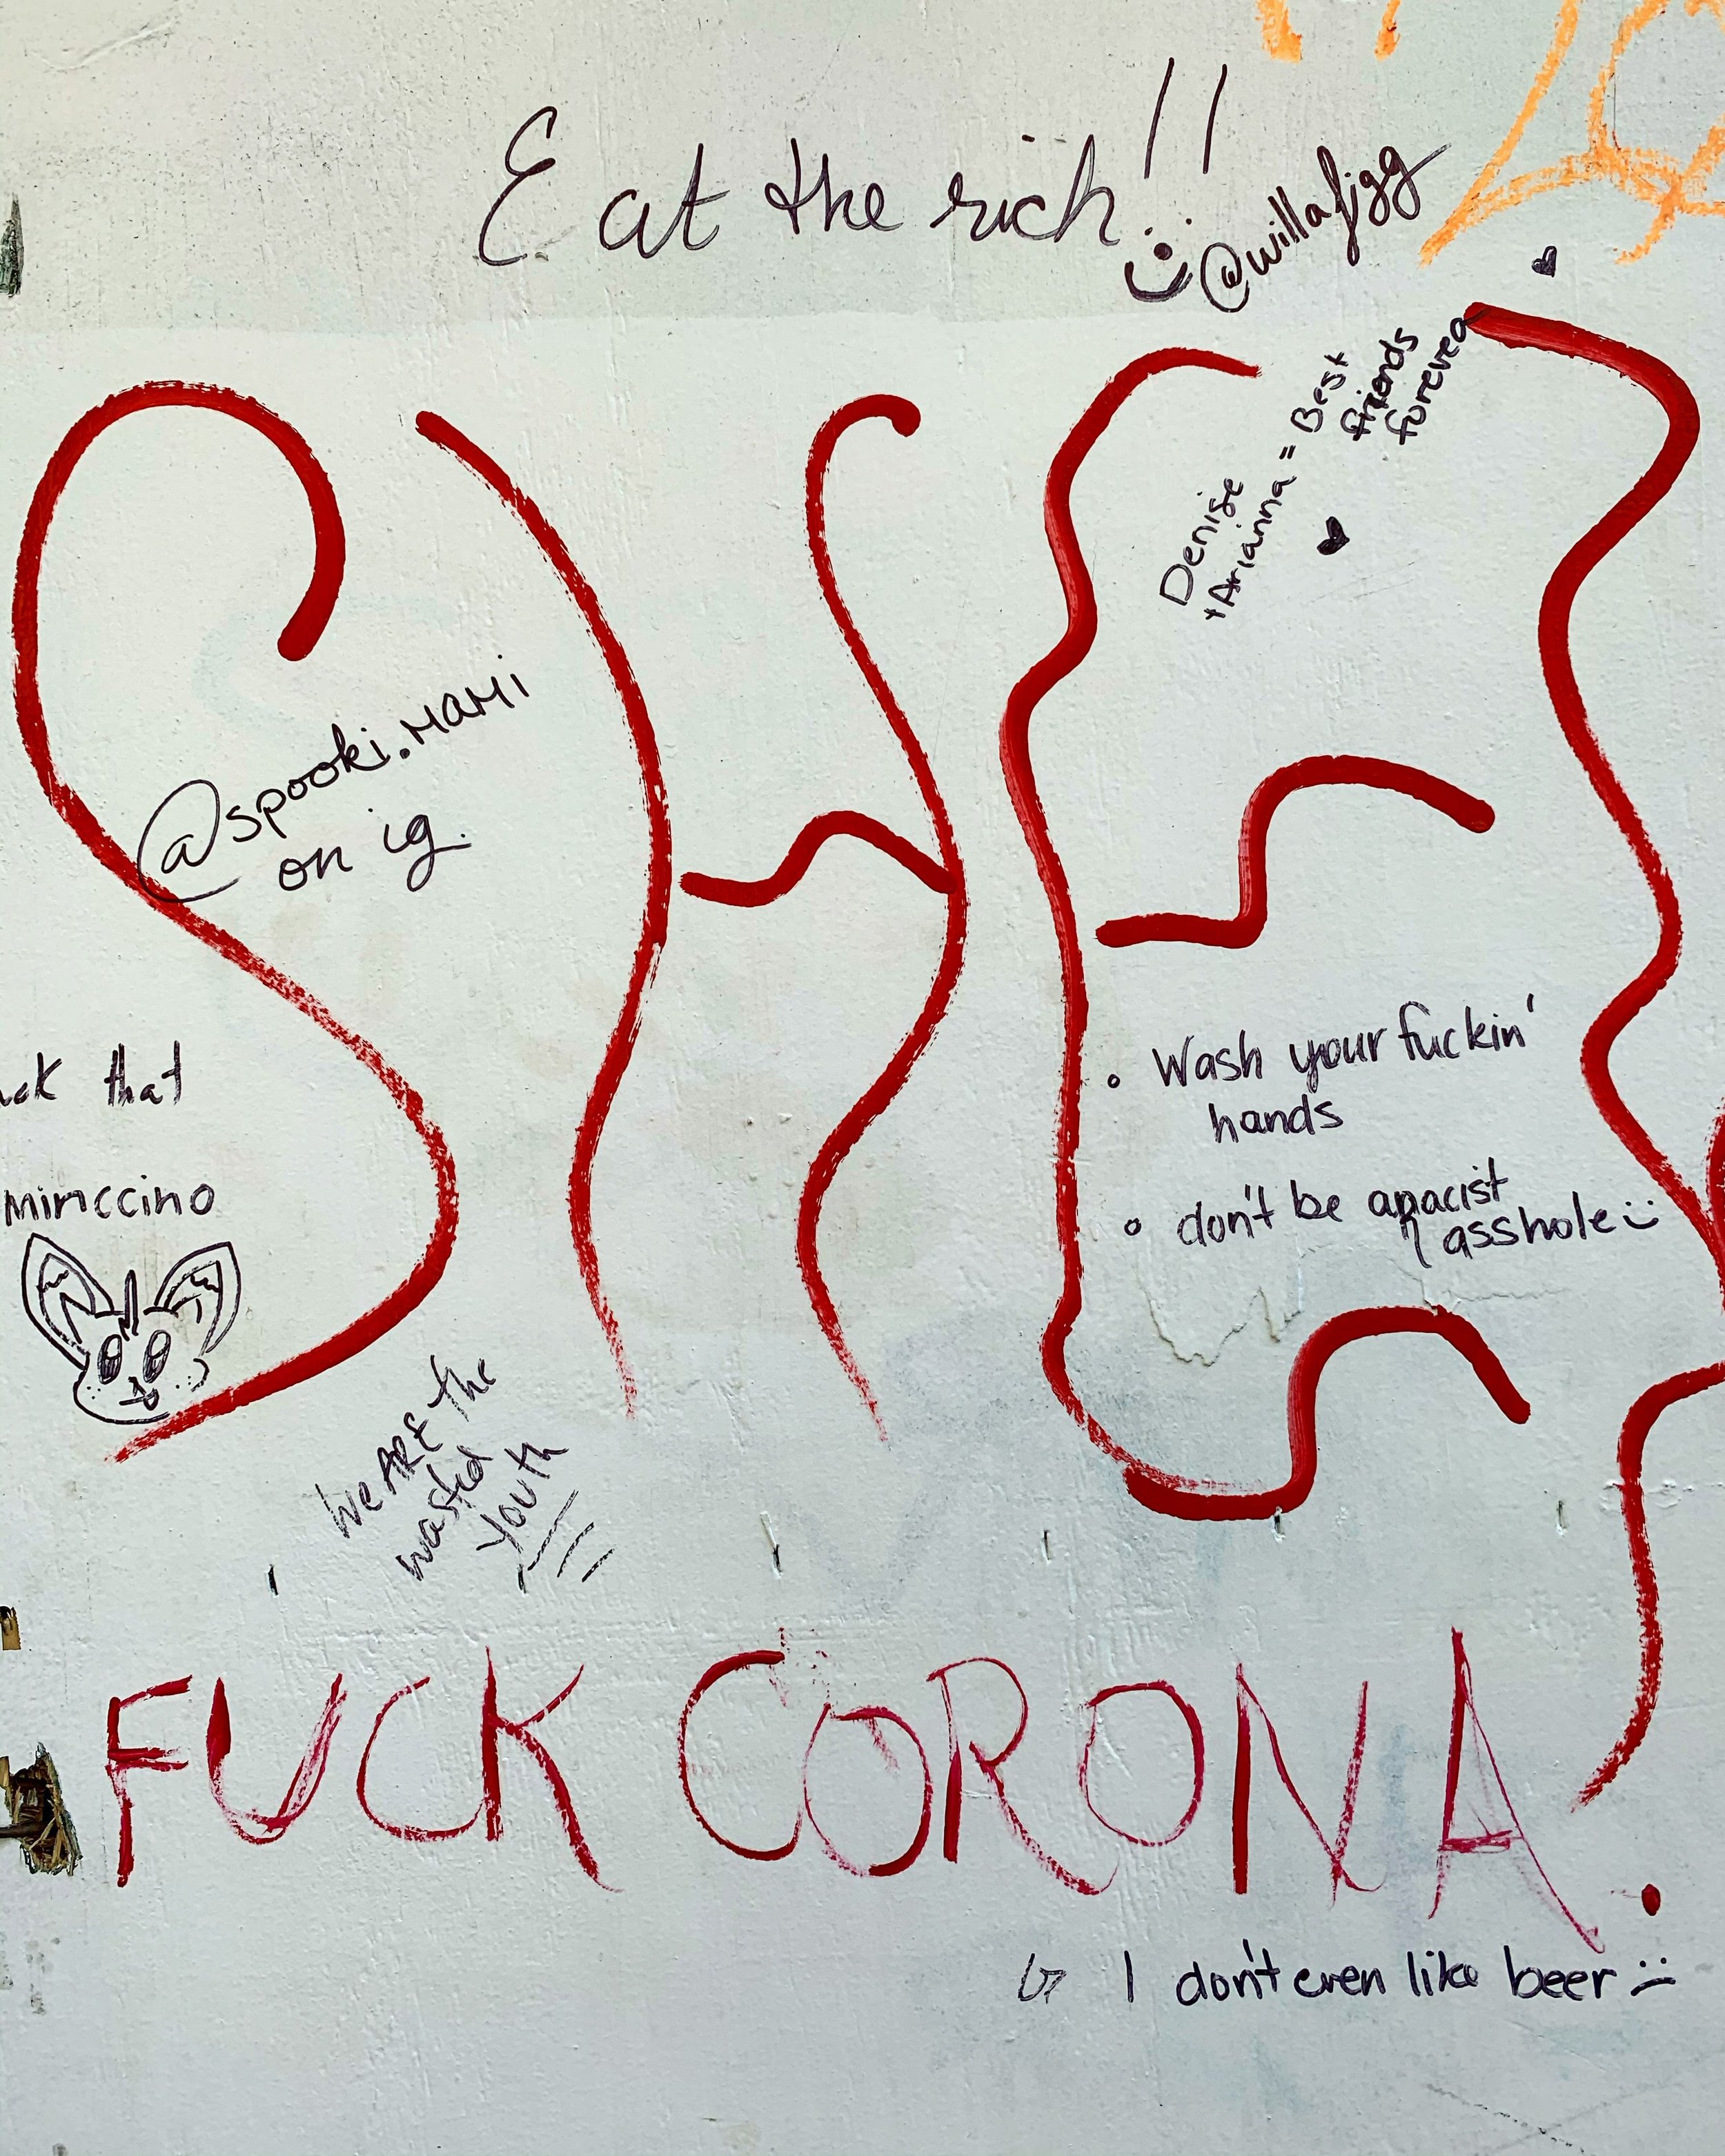 Eat the rich!!
@willafigg
Denise
+Arianna = Best
friends
forever
@spooki.MAMi
on ig.
that
miniccino
• Wash your fuckin'
hands
• don't be a racist
asshole
we ARE the
wasted
youth
FUCK CORONA!
I don't even like beer